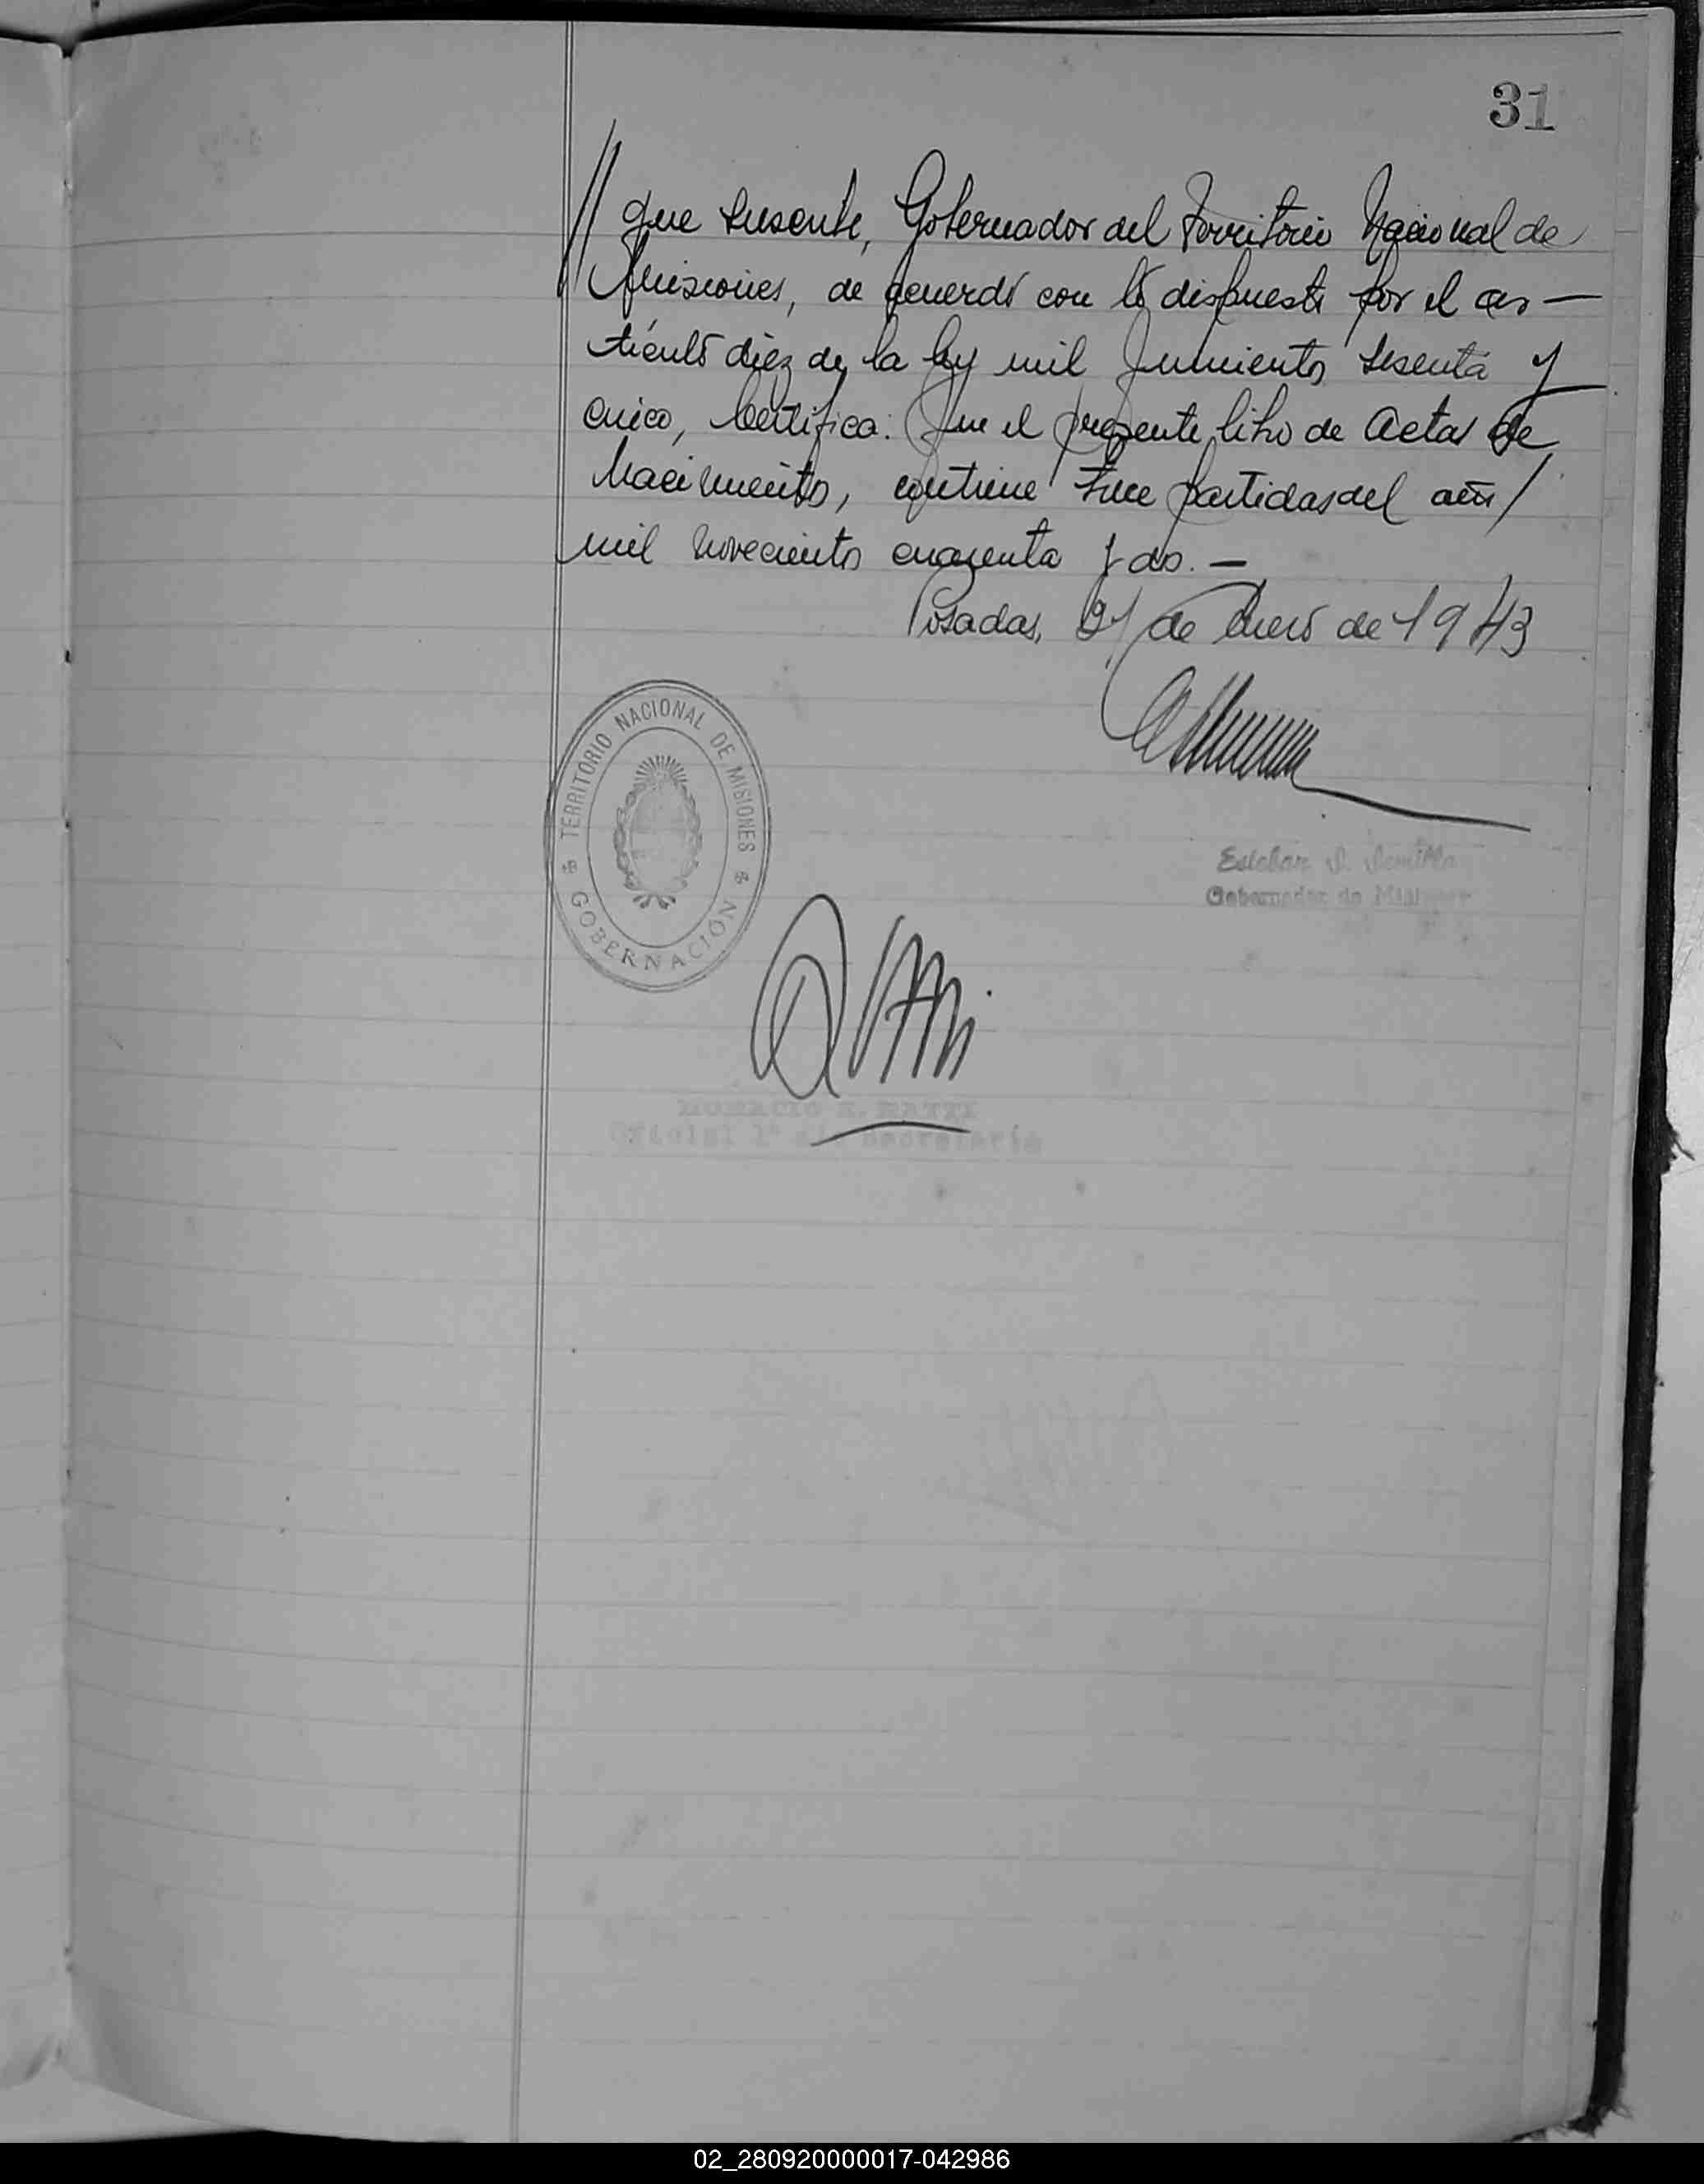 31
// que suscribe, Gobernador del Territorio Nacional de
Misiones, de acuerdo con lo dispuesto por el ar-
tículo diez de la ley mil quinientos sesenta y
cinco, Certifica: Que el presente libro de Actas de
Nacimientos, contiene partidas del año /
mil novecientos cuarenta y dos. —
Posadas, 21 de Enero de 1943
TERRITORIO NACIONAL DE MISIONES
GOBERNACIÓN
Esteban
Gobernador de Misiones
HORACIO R. RATTI
Oficial 1º Secretaría
02_280920000017-042986